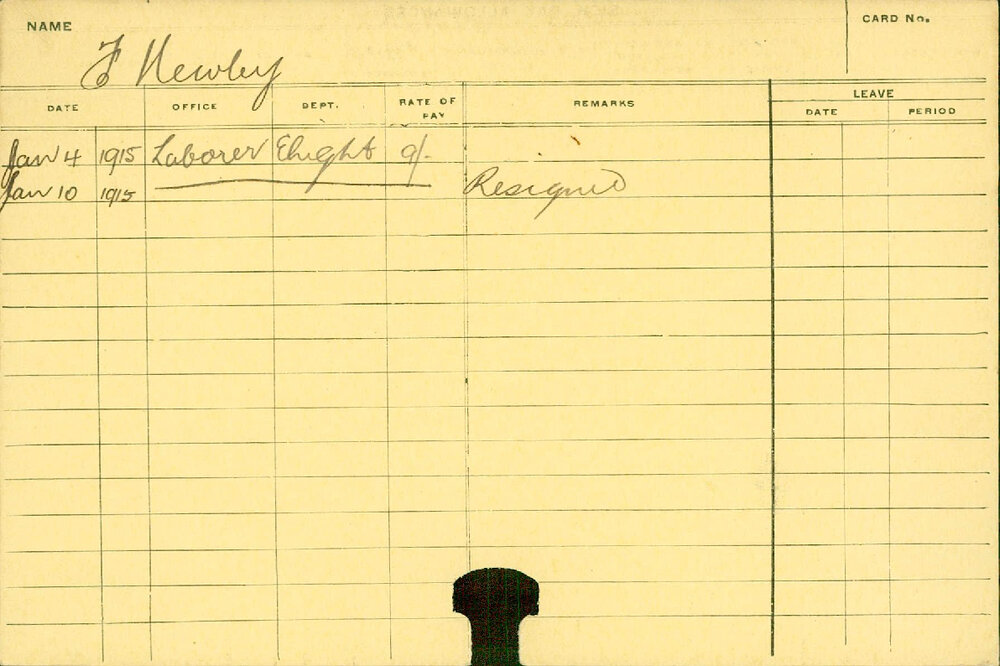 NAME F Newby CARD No.
LEAVE
DATE OFFICE DEPT. RATE OF PAY REMARKS DATE PERIOD
Jan 4 1915 Laborer Elight 9/-
Jan 10 1915 Resigned